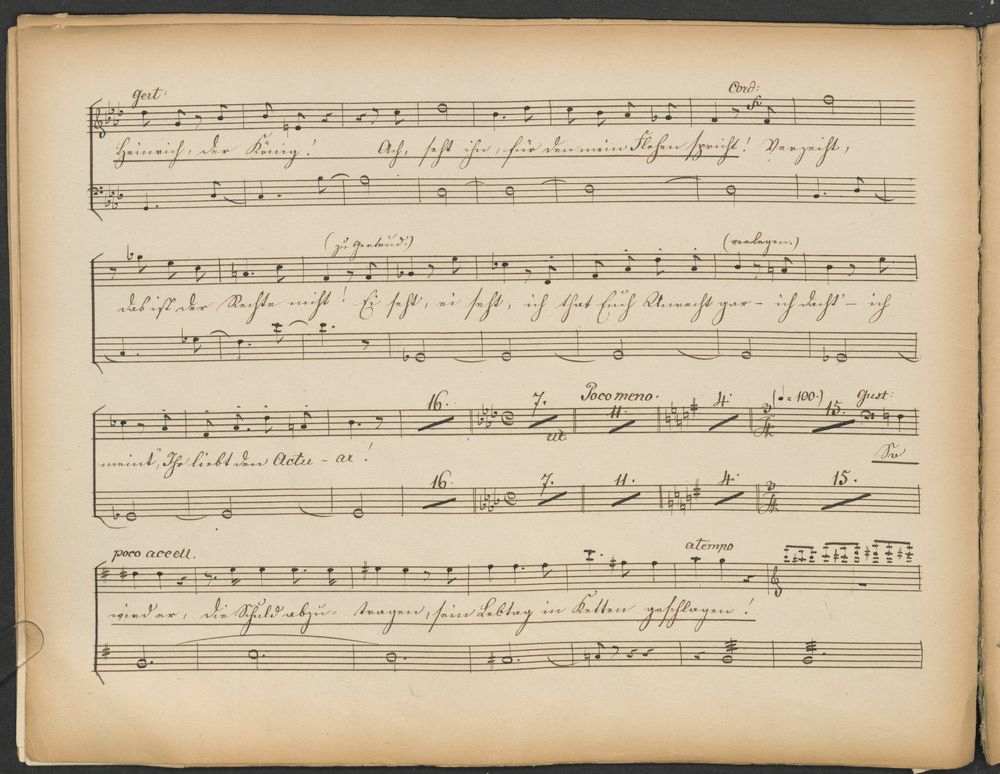 Gert: Cord:
Heinrich, der König! Ach, seht ihn, für den mein Flehen spricht! Verzeiht,
(zu Gertrud.) (verlegen.)
das ist der Rechte nicht! Ei seht, ei seht, ich that Euch Unrecht gar – ich dacht' – ich
16. 7. Poco meno. 11. 4. (♩ = 100.) 15. Gust:
rit
meint', Ihr liebt den Actu - ar! So
16. 7. 11. 4. 15.
poco accell. a tempo
wird er, die Schuld abzu- tragen, sein Lebtag in Ketten geschlagen!